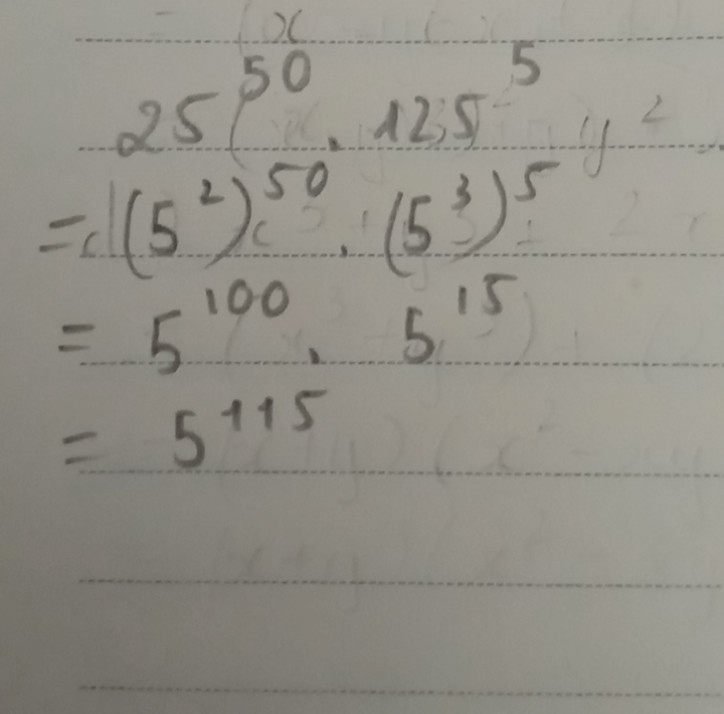 x
25^50 . 125^5
= (5^2)^50 . (5^3)^5
= 5^100 . 5^15
= 5^115